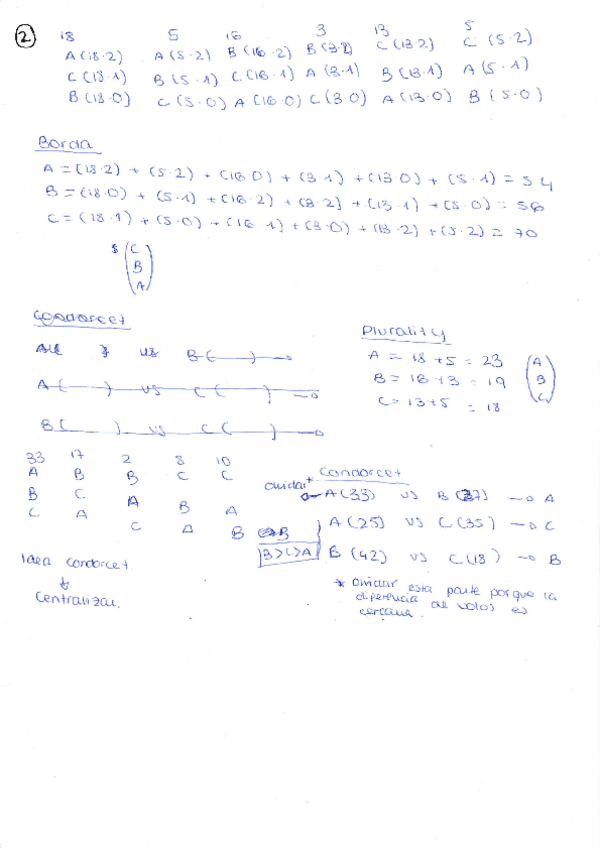 2
18 5 16 3 13 5
A (18·2) A (5·2) B (16·2) B (3·2) C (13·2) C (5·2)
C (18·1) B (5·1) C (16·1) A (3·1) B (13·1) A (5·1)
B (18·0) C (5·0) A (16·0) C (3·0) A (13·0) B (5·0)
Borda
A = (18·2) + (5·2) + (16·0) + (3·1) + (13·0) + (5·1) = 54
B = (18·0) + (5·1) + (16·2) + (3·2) + (13·1) + (5·0) = 56
C = (18·1) + (5·0) + (16·1) + (3·0) + (13·2) + (5·2) = 70
C
B
A
Condorcet
vs B( )
A( ) vs C( )
B( ) vs C( )
Plurality
A = 18+5 = 23
B = 16+3 = 19
C = 13+5 = 18
A
B
C
33 17 2 8 10
A B B C C
B C A B A
C A C A B
Condorcet
A (33) vs B (27) → A
A (25) vs C (35) → C
B (42) vs C (18) → B
B>C>A
* olvidar esta parte porque la
diferencia de votos es
cercana
Idea condorcet
Centralizar.